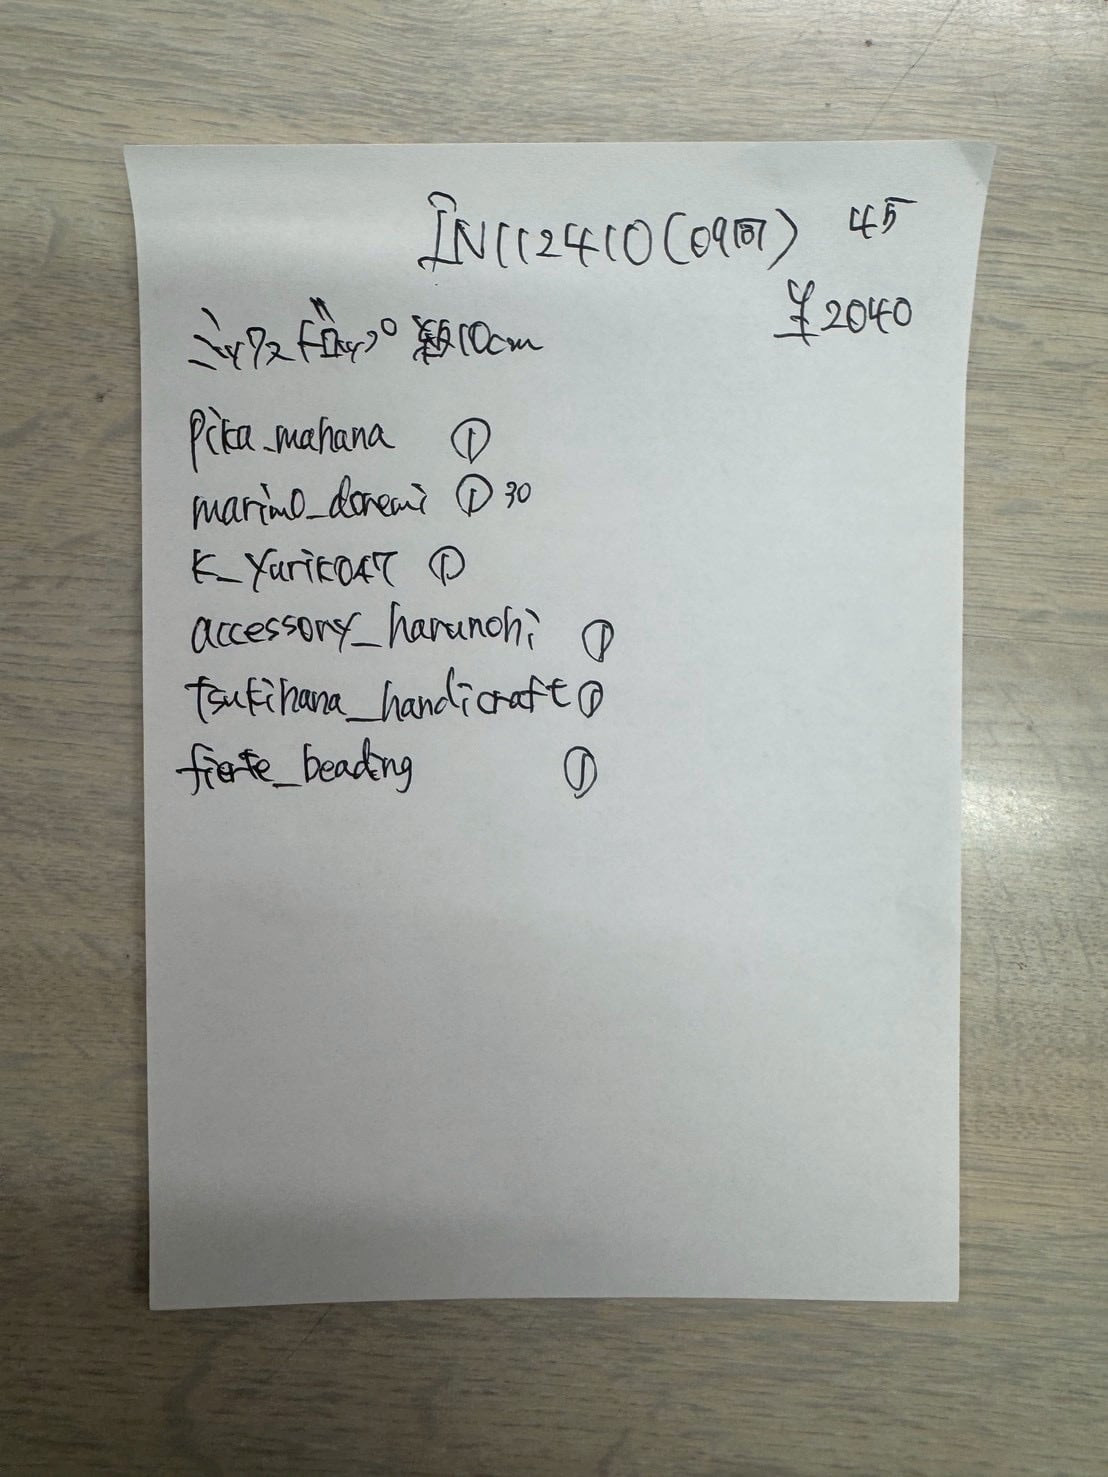 IN112410(09回) 45
¥2040
ミックスドロップ 約10cm
pika_mahana ①
marimo_doremi ① 30
k_yuriko47 ①
accessory_harunohi ①
tsukihana_handicraft ①
fierte_beading ①